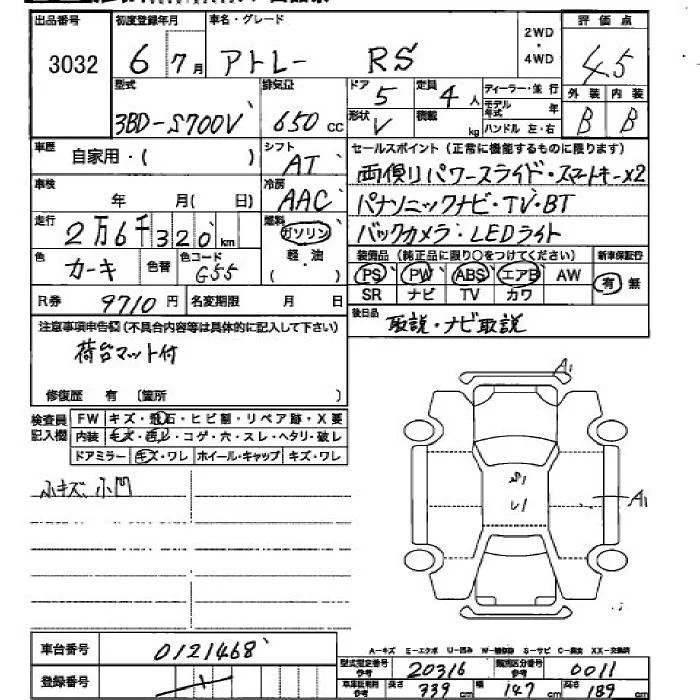 出品番号 初度登録年月 車名・グレード 2WD・4WD 評価点
3032 6年 7月 アトレー RS 4.5
型式 排気量 ドア 5 定員 4人 ディーラー・並行 外装 内装
3BD-S700V 650cc 形状 V 積載 kg モデル年式 年 ハンドル 左・右 B B
車歴 自家用・( ) シフト AT セールスポイント(正常に機能するものに限ります)
車検 年 月( 日) 冷房 AAC 両側パワースライド・スマートキー×2
走行 2万6千320km 燃料 ガソリン 軽・油 ( ) パナソニックナビ・TV・BT
バックカメラ・LEDライト
色 カーキ 色替 色コード G55 装備品(純正品に限り○をつけてください) 新車保証書
PS PW ABS エアB AW 有 無
R券 9710円 名変期限 月 日 SR ナビ TV カワ
注意事項申告欄(不具合内容等は具体的に記入して下さい) 後日品 取説・ナビ取説
荷台マット付
修復歴 有 [箇所 ]
A1
検査員記入欄 FW キズ・飛石・ヒビ割・リペア跡・X要
内装 キズ・汚レ・コゲ・穴・スレ・ヘタリ・破レ
ドアミラー キズ・ワレ ホイール・キャップ キズ・ワレ
小キズ、小凹
S1
A1
レ1
車台番号 0121468 A-キズ E-エクボ U-凹み W-補修跡 S-サビ C-腐食 XX-交換済
型式指定番号 参考 20316 類別区分番号 参考 0011
登録番号 車体証明用 参考 長さ 339cm 幅 147cm 高さ 189cm